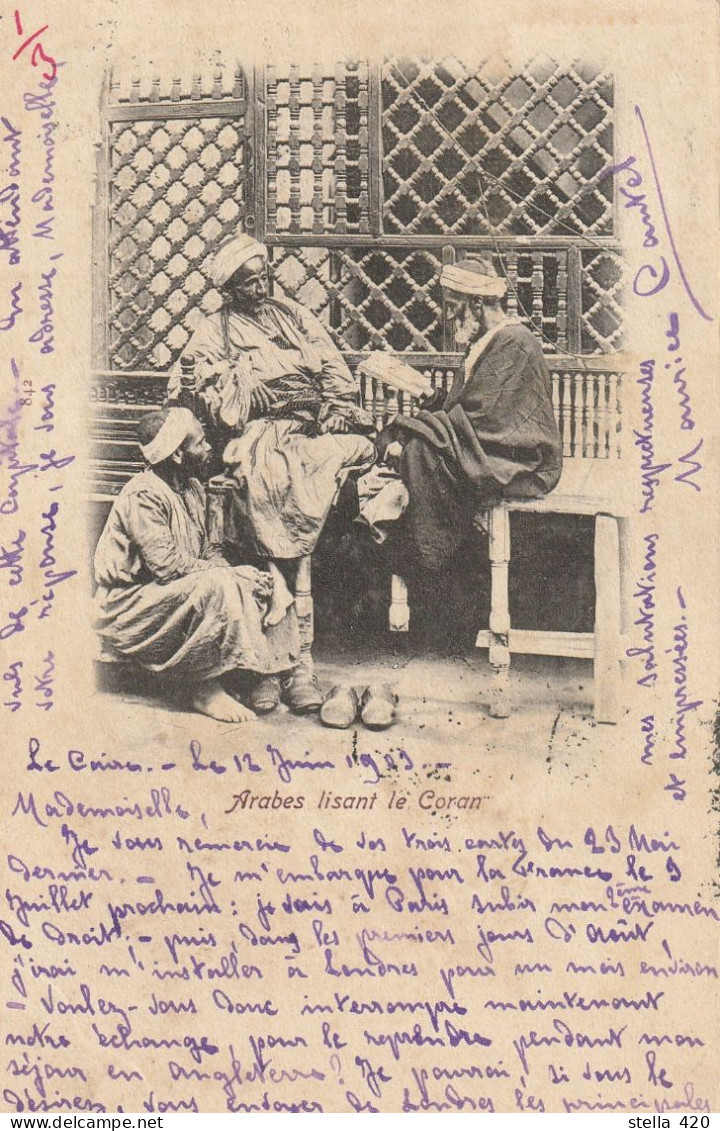 Le Caire. - Le 12 Juin 1903. -
Arabes lisant le Coran
Mademoiselle,
Je vous remercie de vos trois cartes du 23 Mai
dernier. - Je m'embarque pour la France le 9
Juillet prochain : je vais à Paris subir mon 2ème examen
de droit. - puis, dans les premiers jours d'août,
j'irai m'installer à Londres pour un mois environ
- Voulez-vous donc interrompre maintenant
notre échange, pour le reprendre pendant mon
séjour en Angleterre? Je pourrai, si vous le
désirez, vous envoyer de Londres les principales
vues de cette capitale - En attendant
votre réponse, je vous adresse, Mademoiselle,
mes salutations respectueuses
et empressées. -
Maurice
842
3
stella 420